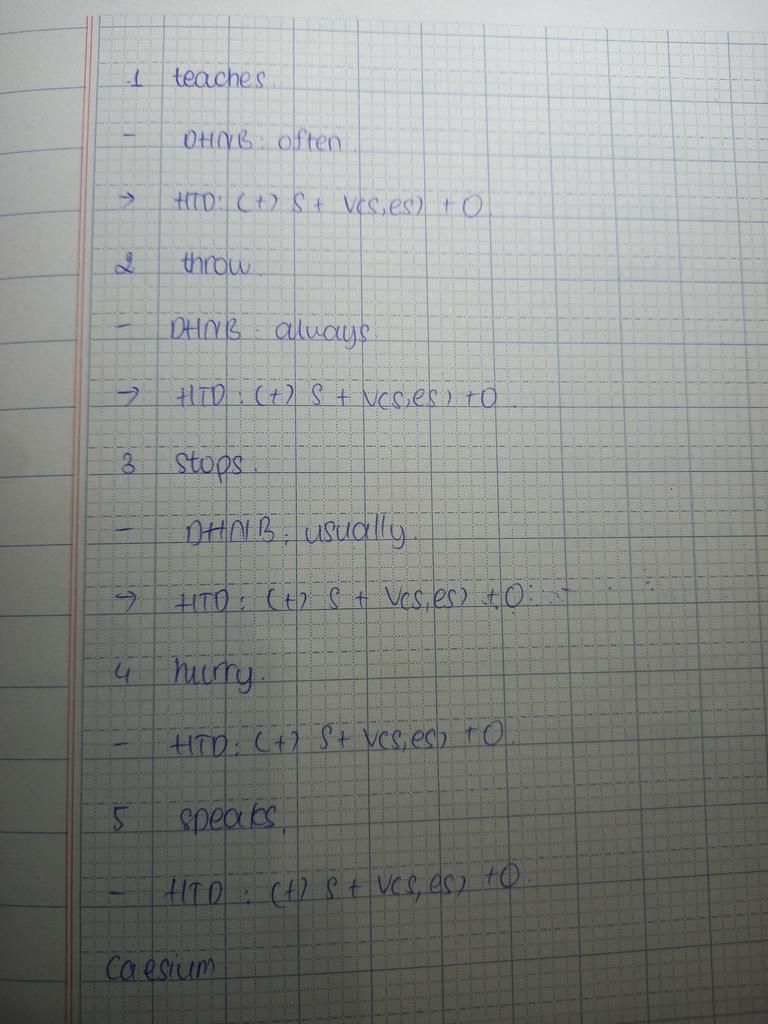 1 teaches.
- DHNB: often
→ HTD: (+) S + V(s,es) + O.
2 throw.
- DHNB: always.
→ HTD: (+) S + V(s,es) + O.
3 stops.
- DHNB: usually.
→ HTD: (+) S + V(s,es) + O.
4 hurry.
- HTD: (+) S + V(s,es) + O.
5 speaks.
- HTD: (+) S + V(s,es) + O.
Caesium